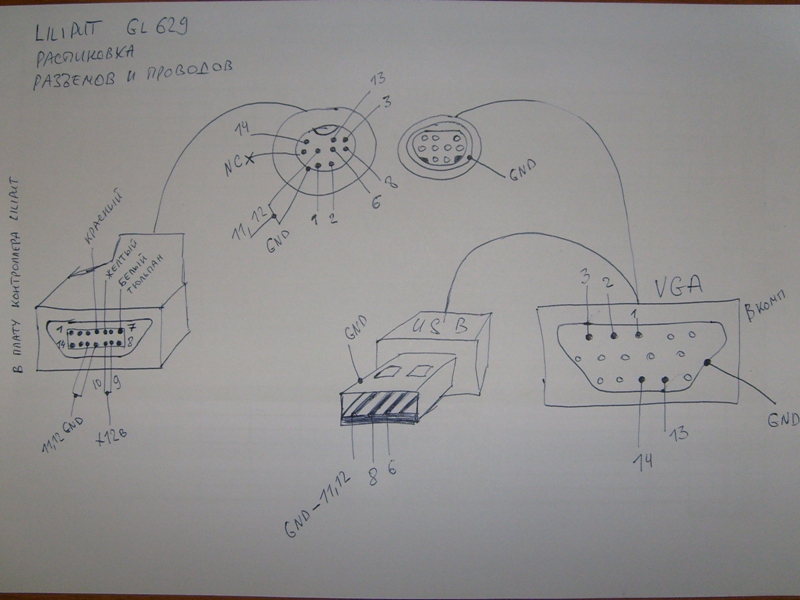 LILIPUT GL 629
РАСПИНОВКА
РАЗЪЕМОВ И ПРОВОДОВ
13
3
14
NC
8
6
11,12
1
2
GND
GND
В ПЛАТУ КОНТРОЛЛЕРА LILIPUT
КРАСНЫЙ
ЖЕЛТЫЙ
БЕЛЫЙ
ТЮЛЬПАН
1
7
14
8
10
9
11,12 GND
+12В
GND
USB
GND-11,12
8
6
VGA
В КОМП
3
2
1
14
13
GND